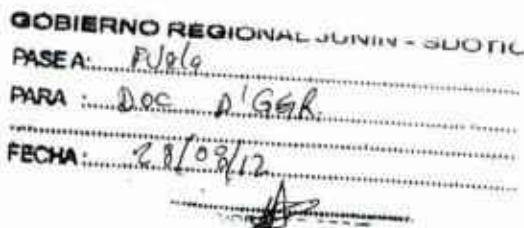 GOBIERNO REGIONAL JUNIN - SDOTIC
PASE A:
PARA : DOC D'GGR.
FECHA: 28/08/12